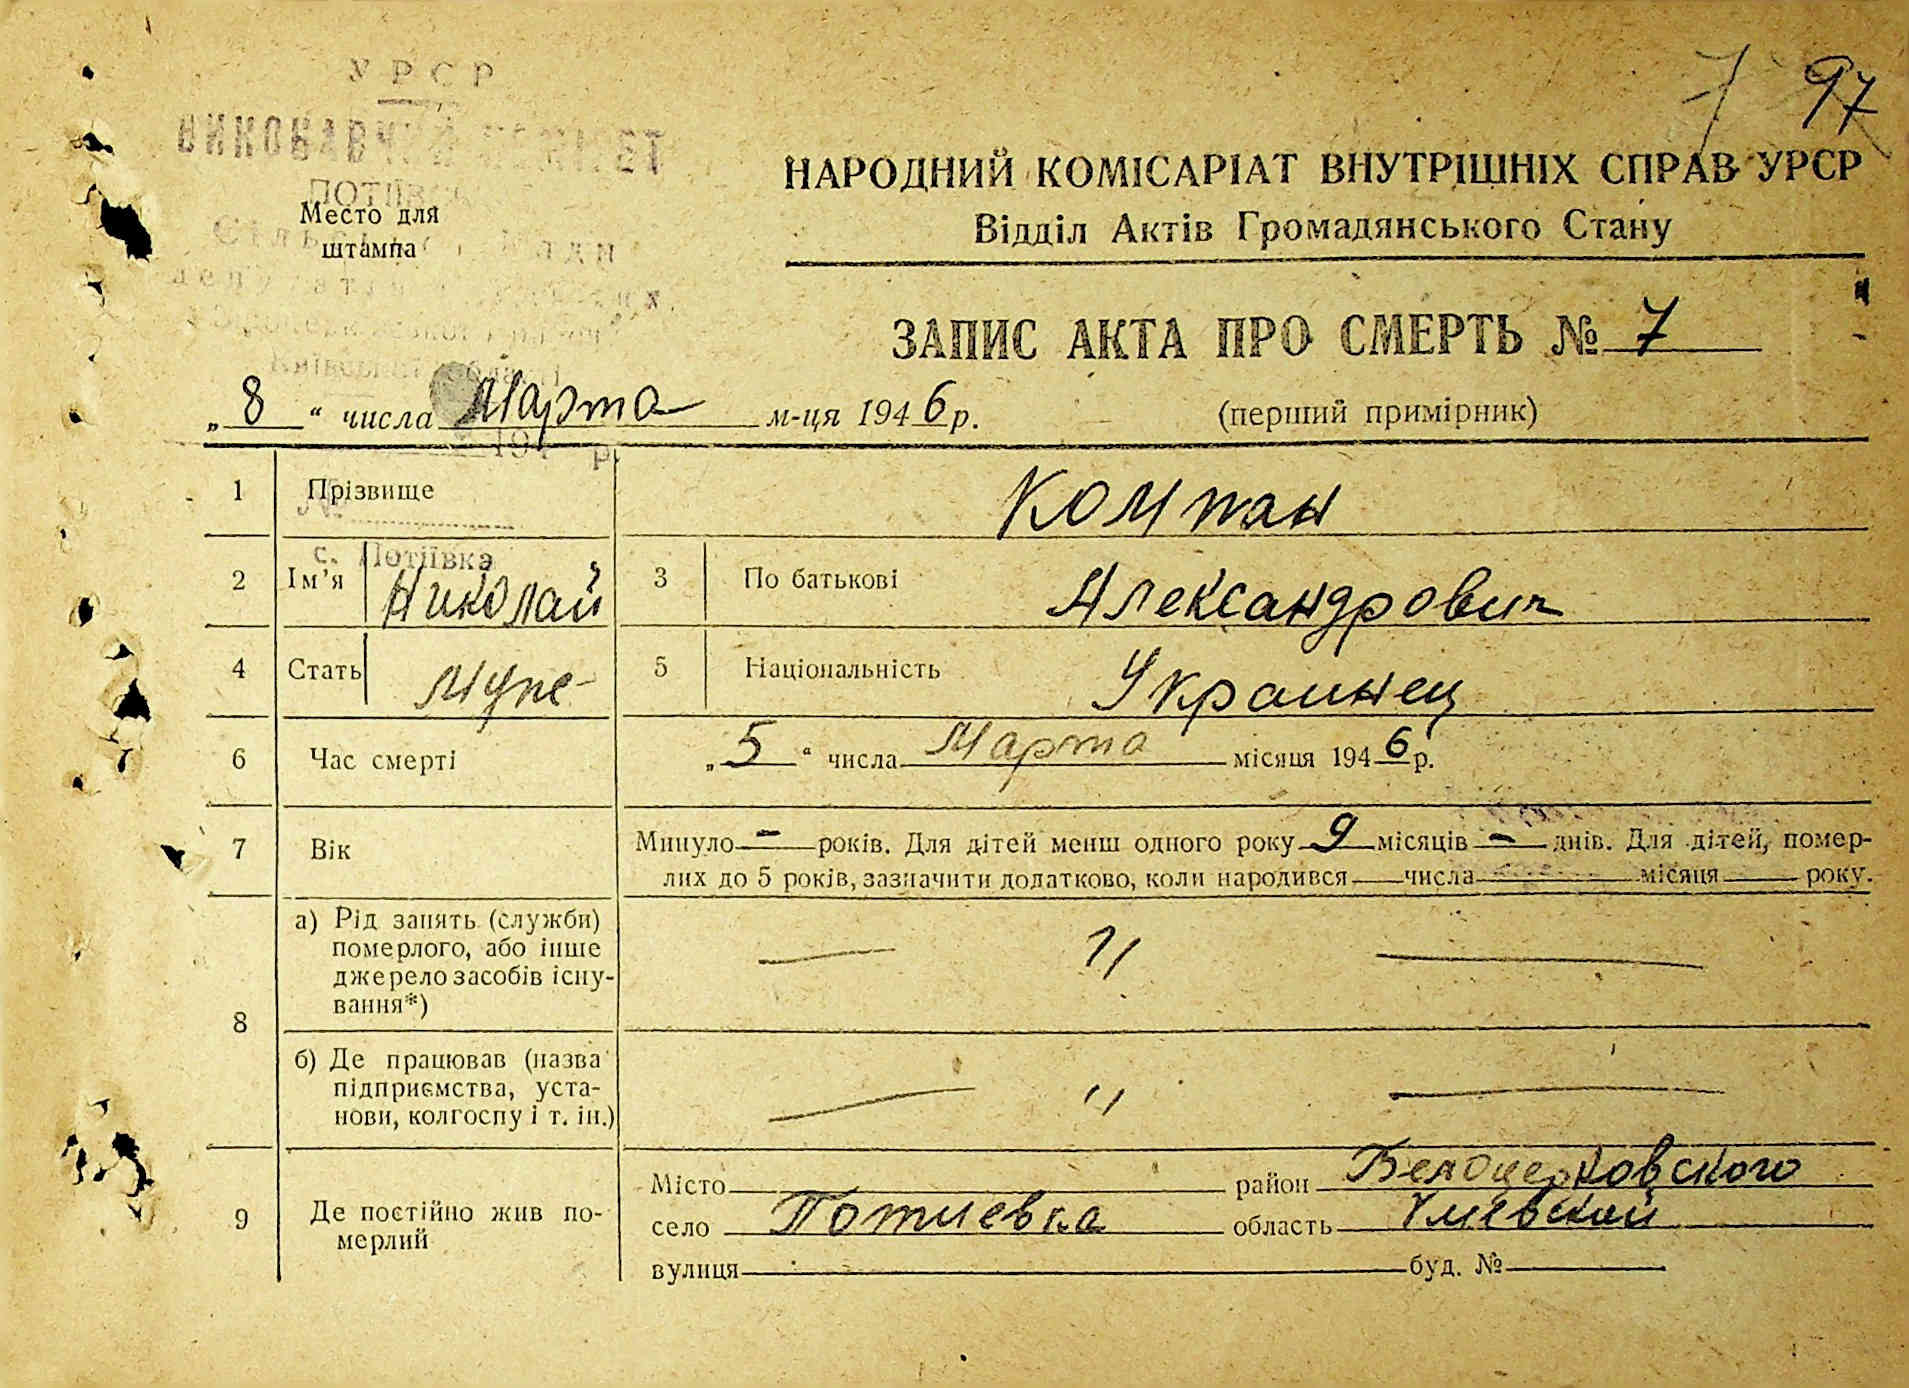 УРСР
7 97
ВИКОНАВЧИЙ КОМІТЕТ
НАРОДНИЙ КОМІСАРІАТ ВНУТРІШНІХ СПРАВ УРСР
Место для
штампа
Відділ Актів Громадянського Стану
ЗАПИС АКТА ПРО СМЕРТЬ № 7
„ 8 “ числа Марта м-ця 1946 р.
(перший примірник)
194 р.
1 Прізвище Компан
№
с. Потіївка
2 Ім’я Николай 3 По батькові Александрович
4 Стать Муже 5 Національність Украинец
6 Час смерті „ 5 “ числа Марта місяця 1946 р.
7 Вік Минуло - років. Для дітей менш одного року 9 місяців - днів. Для дітей, помер-
лих до 5 років, зазначити додатково, коли народився числа місяця року.
8
а) Рід занять (служби)
померлого, або інше
джерело засобів існу-
вання*)
— // —
б) Де працював (назва
підприємства, уста-
нови, колгоспу і т. ін.)
— // —
9 Де постійно жив по-
мерлий
Місто район Белоцерковского
село Потиевка область Киевской
вулиця буд. №